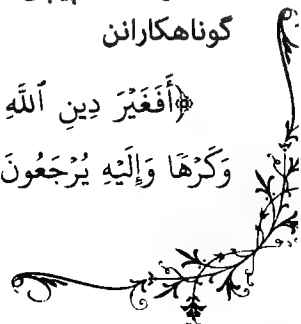 گوناهكارانن
﴿أَفَغَيْرَ دِينِ ٱللَّهِ
وَكَرْهًا وَإِلَيْهِ يُرْجَعُونَ